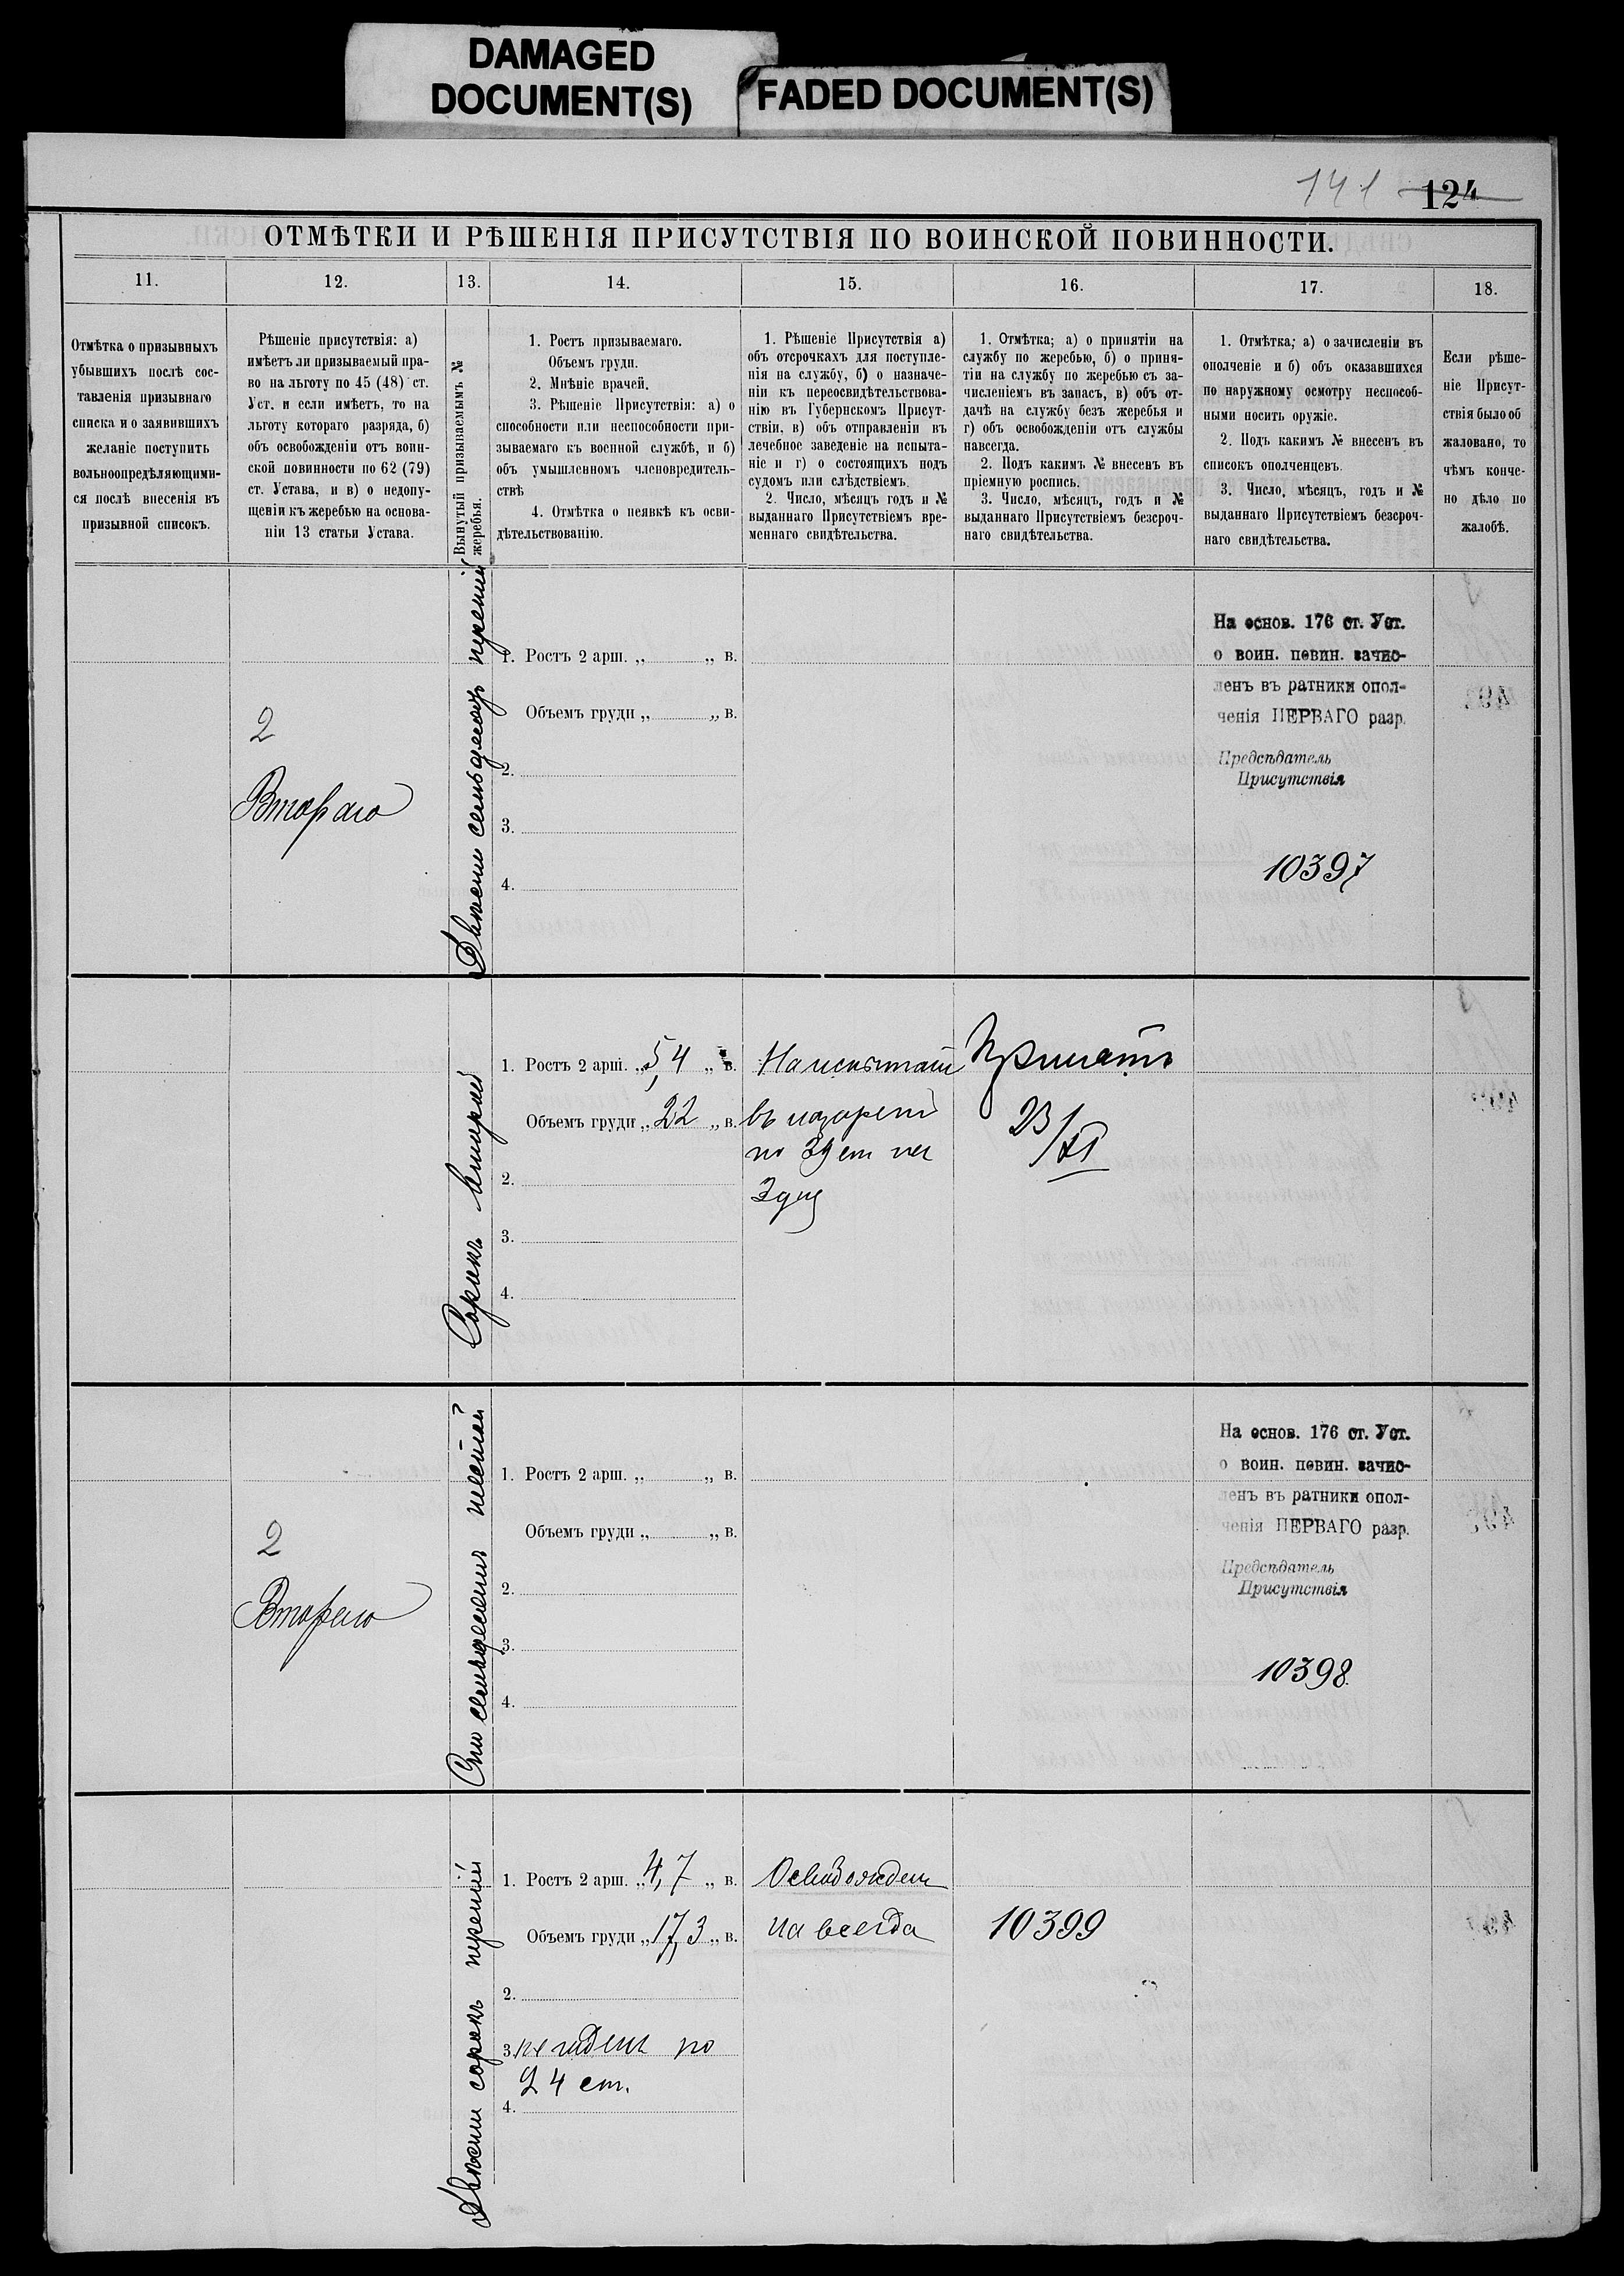 DAMAGED
DOCUMENT(S)
FADED DOCUMENT(S)
141 124
ОТМѢТКИ И РѢШЕНІЯ ПРИСУТСТВІЯ ПО ВОИНСКОЙ ПОВИННОСТИ.
11.
12.
13.
14.
15.
16.
17.
18.
Отмѣтка о призывныхъ
убывшихъ послѣ сос-
тавленія призывнаго
списка и о заявившихъ
желаніе поступить
вольноопредѣляющими-
ся послѣ внесенія въ
призывной списокъ.
Рѣшеніе присутствія: а)
имѣетъ ли призываемый пра-
во на льготу по 45 (48) ст.
Уст. и если имѣетъ, то на
льготу котораго разряда, б)
объ освобожденіи отъ воин-
ской повинности по 62 (79)
ст. Устава, и в) о недопу-
щеніи къ жеребью на основа-
ніи 13 статьи Устава.
Вынутый призываемымъ №
жеребья.
1. Ростъ призываемаго.
Объемъ груди.
2. Мнѣніе врачей.
3. Рѣшеніе Присутствія: а) о
способности или неспособности при-
зываемаго къ военной службѣ, и б)
объ умышленномъ членовредитель-
ствѣ
4. Отмѣтка о неявкѣ къ осви-
дѣтельствованію.
1. Рѣшеніе Присутствія а)
объ отсрочкахъ для поступле-
нія на службу, б) о назначе-
ніи къ переосвидѣтельствова-
нію въ Губернскомъ Присут-
ствіи, в) объ отправленіи въ
лечебное заведеніе на испыта-
ніе и г) о состоящихъ подъ
судомъ или слѣдствіемъ.
2. Число, мѣсяцъ годъ и №
выданнаго Присутствіемъ вре-
меннаго свидѣтельства.
1. Отмѣтка; а) о принятіи на
службу по жеребью, б) о приня-
тіи на службу по жеребью съ за-
численіемъ въ запасъ, в) объ от-
дачѣ на службу безъ жеребья и
г) объ освобожденіи отъ службы
навсегда.
2. Подъ какимъ № внесенъ въ
пріемную роспись.
3. Число, мѣсяцъ, годъ и №
выданнаго Присутствіемъ безсроч-
наго свидѣтельства.
1. Отмѣтка; а) о зачисленіи въ
ополченіе и б) объ оказавшихся
по наружному осмотру неспособ-
ными носить оружіе.
2. Подъ какимъ № внесенъ въ
списокъ ополченцевъ.
3. Число, мѣсяцъ, годъ и №
выданнаго Присутствіемъ безсроч-
наго свидѣтельства.
Если рѣше-
ніе Присут-
ствія было об
жаловано, то
чѣмъ конче-
но дѣло по
жалобѣ.
2
Втораго
Двѣсти семьдесятъ третій
1. Ростъ 2 арш. „ „ в.
Объемъ груди „ „ в.
2.
3.
4.
На основ. 176 ст. Уст.
о воин. повин. зачис-
ленъ въ ратники опол-
ченія ПЕРВАГО разр.
Предсѣдатель
Присутствія
10397
Сорокъ второй
1. Ростъ 2 арш. „ 5,4 „ в.
Объемъ груди „ 22 „ в.
2.
3.
4.
На испытаніе
въ лазаретъ
по 39 ст
Принятъ
23/XI
2
Втораго
Сто семьдесятъ шестой
1. Ростъ 2 арш. „ „ в.
Объемъ груди „ „ в.
2.
3.
4.
На основ. 176 ст. Уст.
о воин. повин. зачис-
ленъ въ ратники опол-
ченія ПЕРВАГО разр.
Предсѣдатель
Присутствія
10398
Двѣсти сорокъ третій
1. Ростъ 2 арш. „ 4,7 „ в.
Объемъ груди „ 17,3 „ в.
2.
3. не годенъ по
24 ст.
4.
Освобожденъ
на всегда
10399